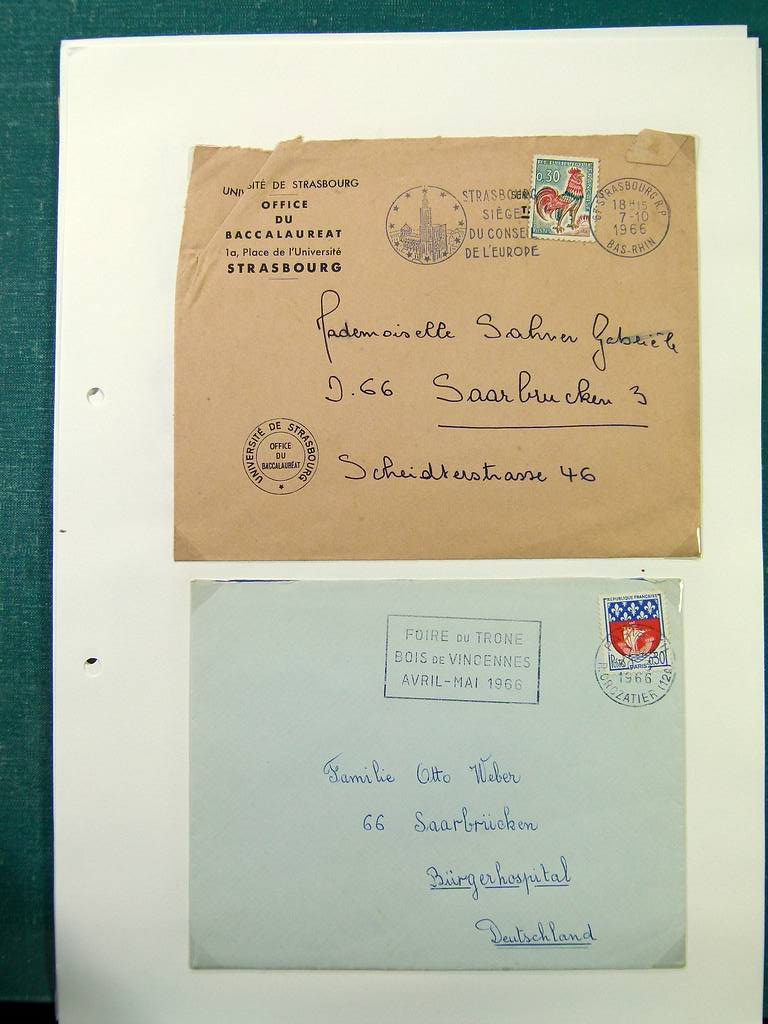 UNIVERSITÉ DE STRASBOURG
OFFICE
DU
BACCALAUREAT
1a, Place de l'Université
STRASBOURG
STRASBOURG
SIÈGE
DU CONSE
DE L'EUROPE
0,30
STRASBOURG R.P.
18 H 15
7-10
1966
BAS-RHIN
Mademoiselle Sahner Gabrièle
D.66 Saarbrucken 3
Scheidterstrasse 46
UNIVERSITÉ DE STRASBOURG
OFFICE
DU
BACCALAURÉAT
FOIRE DU TRONE
BOIS DE VINCENNES
AVRIL-MAI 1966
REPUBLIQUE FRANÇAISE
Postes 0,30
PARIS
1966
R. CROZATIER (12E)
Familie Otto Weber
66 Saarbrücken
Bürgerhospital
Deutschland